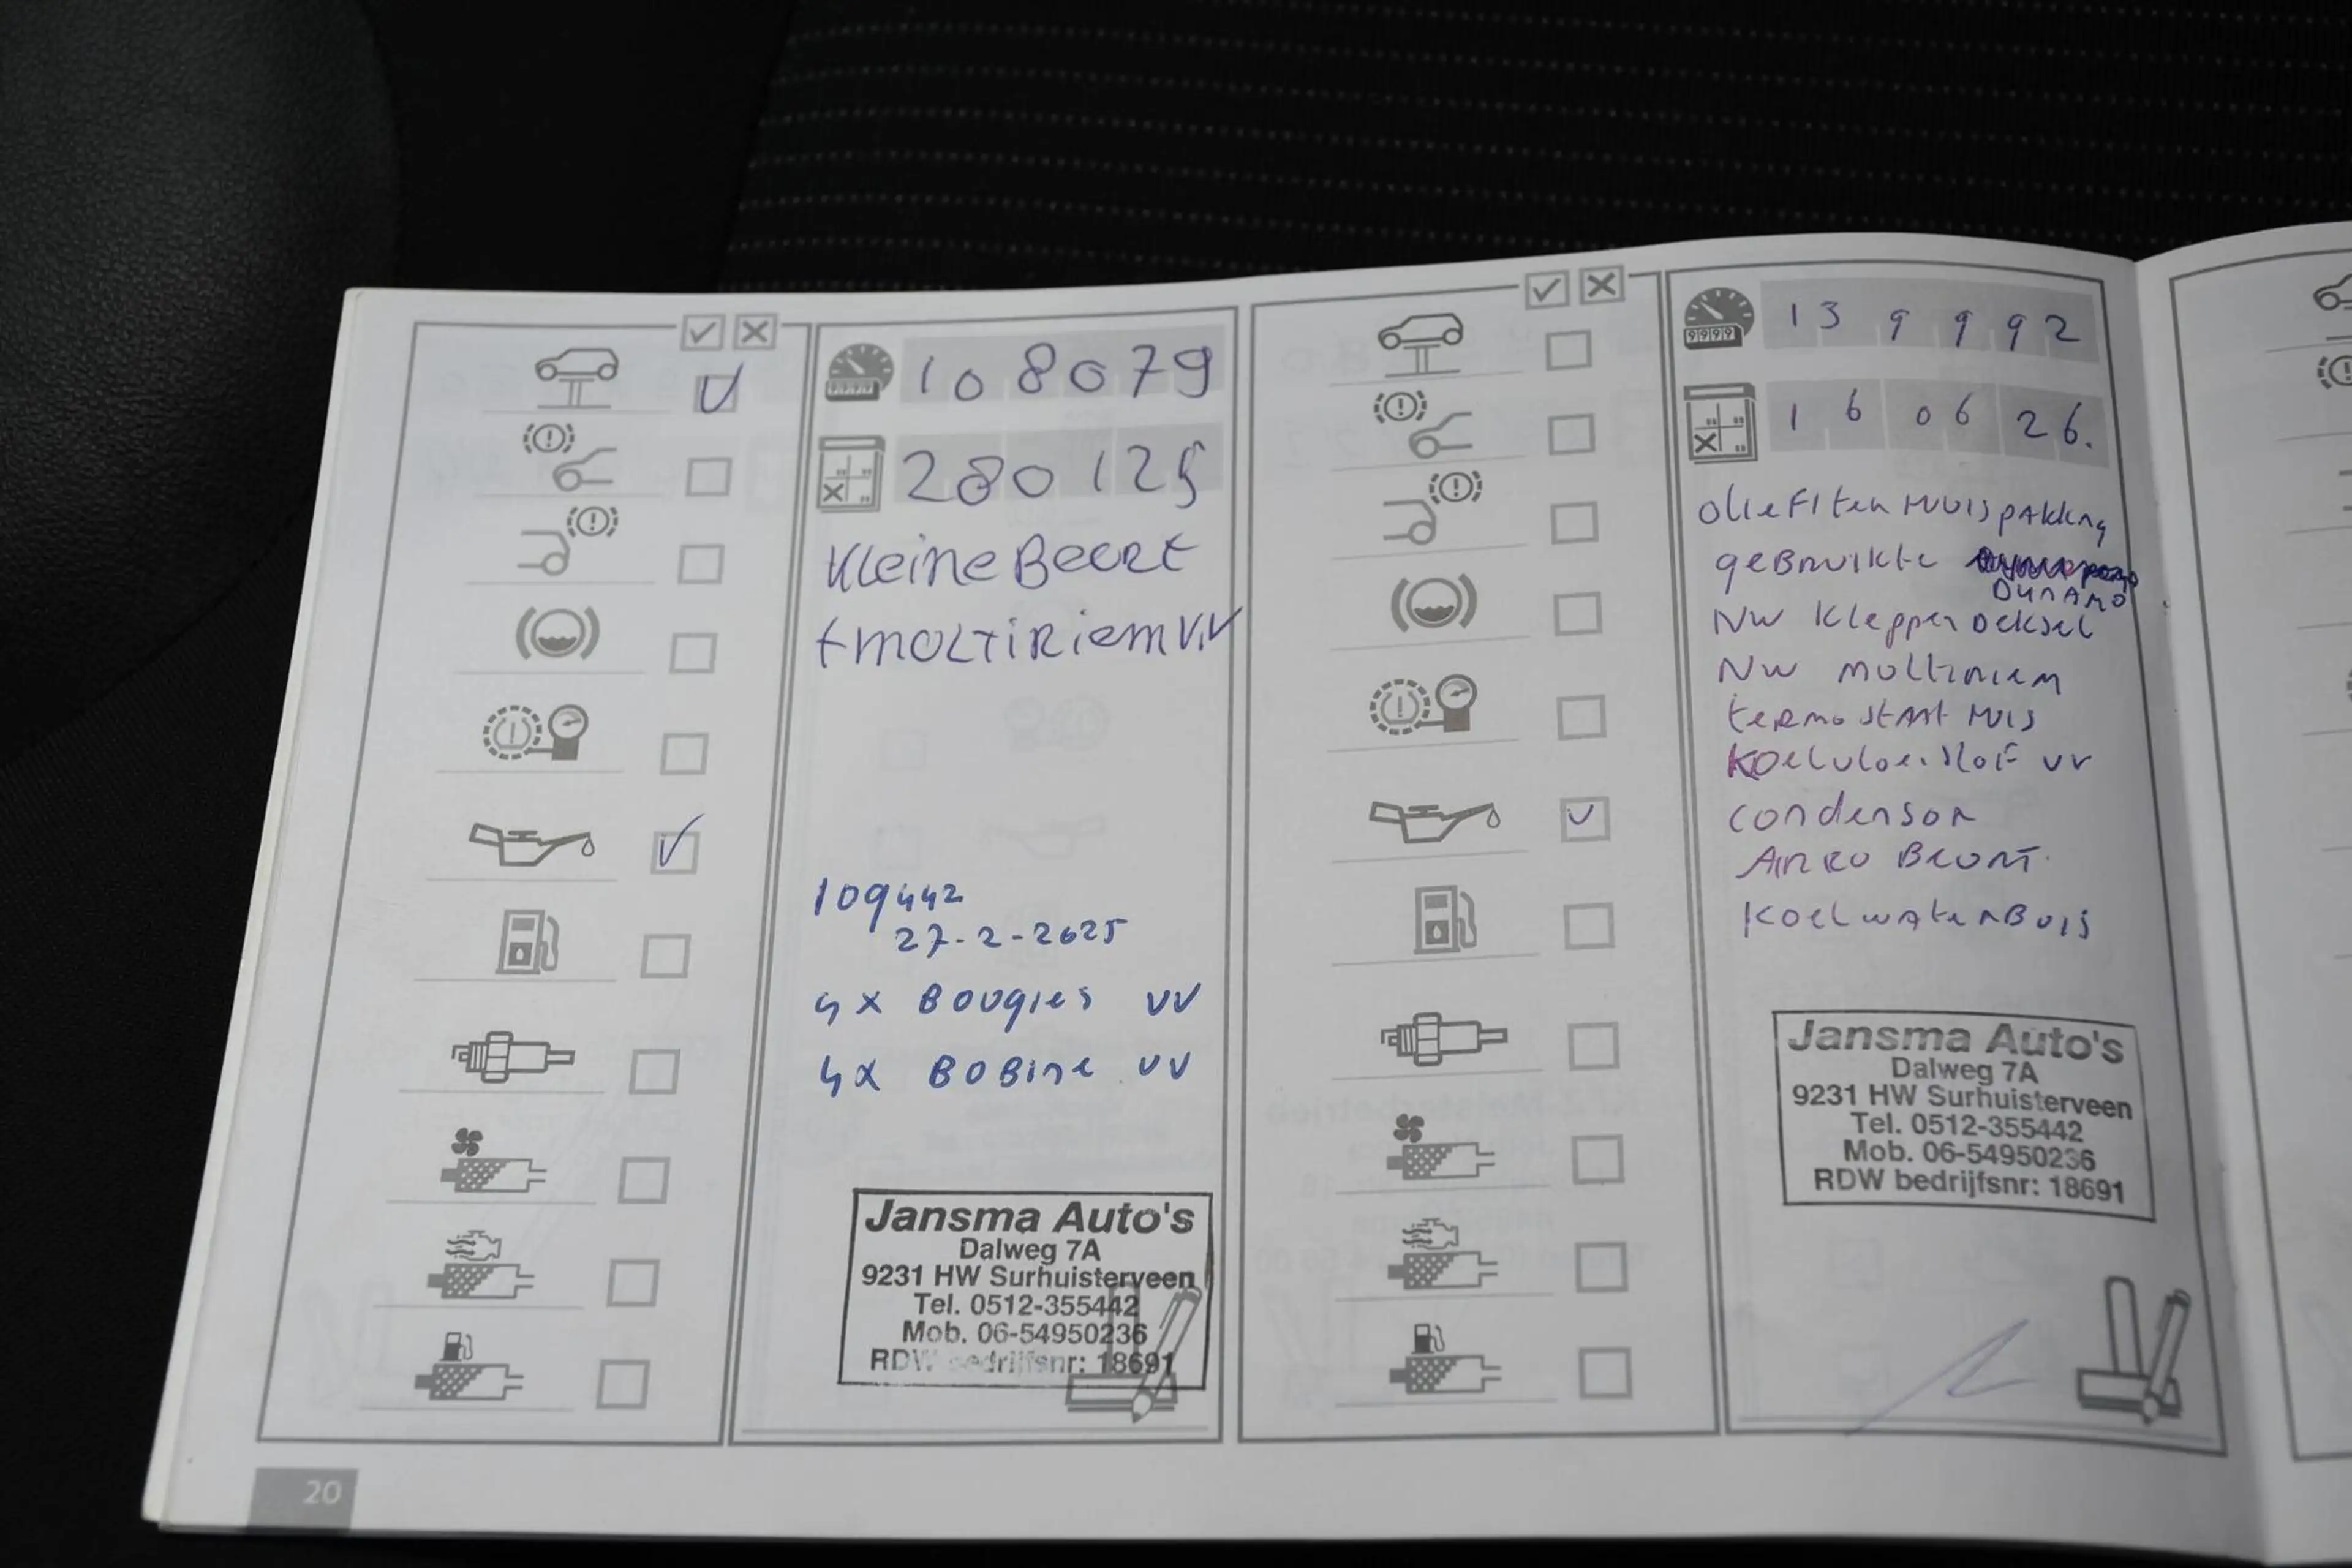 108079
280125
Kleine Beert
+ moltiriem V.V
109442
27-2-2025
4x Bougies vv
4x Bobine vv
Jansma Auto's
Dalweg 7A
9231 HW Surhuisterveen
Tel. 0512-355442
Mob. 06-54950236
RDW bedrijfsnr: 18691
20
139992
160626.
olieFilter Huis pakking
geBruikte
Dynamo
NW Kleppen Deksel
NW multiriem
termostaat Huis
Koelvloeistof vv
condensor
Airco Beurt.
KoelwaterBuis
Jansma Auto's
Dalweg 7A
9231 HW Surhuisterveen
Tel. 0512-355442
Mob. 06-54950236
RDW bedrijfsnr: 18691